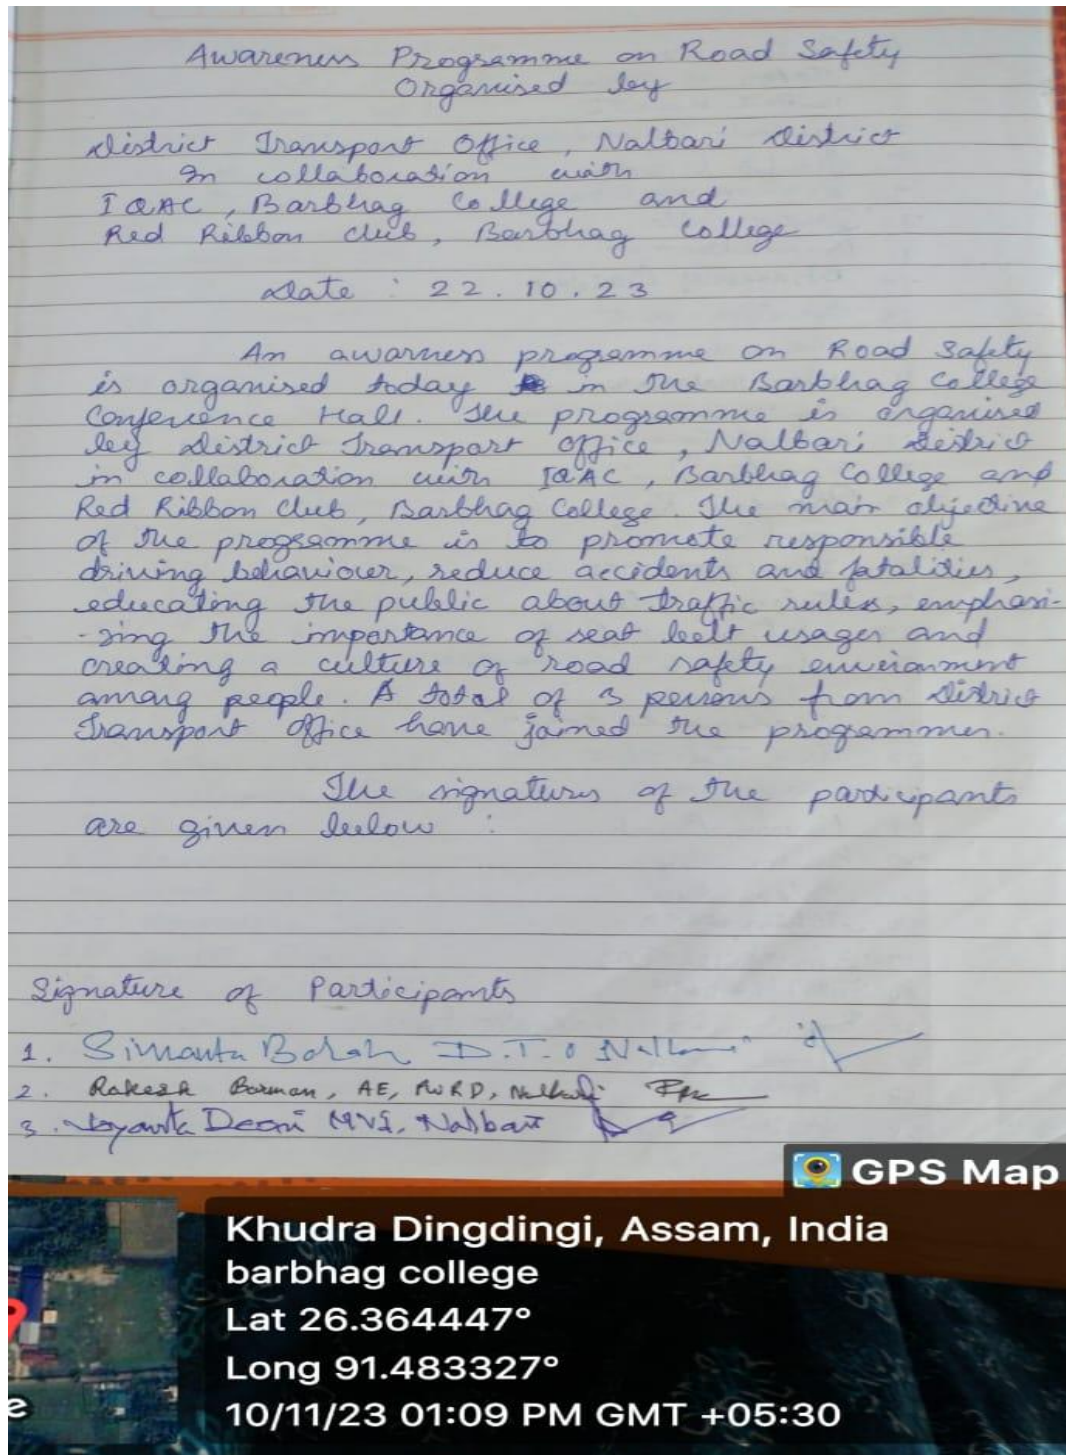 Awareness Programme on Road Safety
Organised by
District Transport Office, Nalbari District
In collaboration with
IQAC, Barbhag College and
Red Ribbon Club, Barbhag College
Date : 22.10.23
An awarness programme on Road Safety
is organised today in the Barbhag College
Conference Hall. The programme is organised
by District Transport Office, Nalbari District
in collaboration with IQAC, Barbhag College and
Red Ribbon Club, Barbhag College. The main objective
of the programme is to promote responsible
driving behaviour, reduce accidents and fatalities,
educating the public about traffic rules, emphasi-
-zing the importance of seat belt usages and
creating a culture of road safety environment
among people. A total of 3 persons from District
Transport Office have joined the programmes.
The signatures of the participants
are given below :
Signature of Participants
1. Simanta Borah D.T.O Nalbari
2. Rakesh Barman, AE, PWRD, Nalbari
3. Jayanta Deori MVI, Nalbari
GPS Map
Khudra Dingdingi, Assam, India
barbhag college
Lat 26.364447°
Long 91.483327°
10/11/23 01:09 PM GMT +05:30